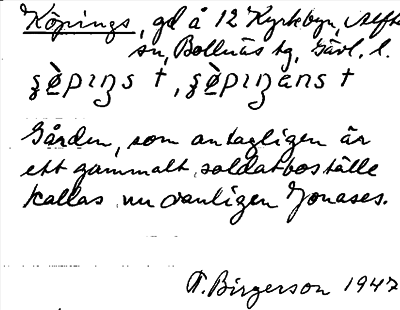 Köpings, gd å 12 Kyrkbyn, Alfta
sn, Bollnäs tg, Gävl. l.
Gården, som antagligen är
ett gammalt soldatboställe
kallas nu vanligen Jonases.
T. Birgerson 1947